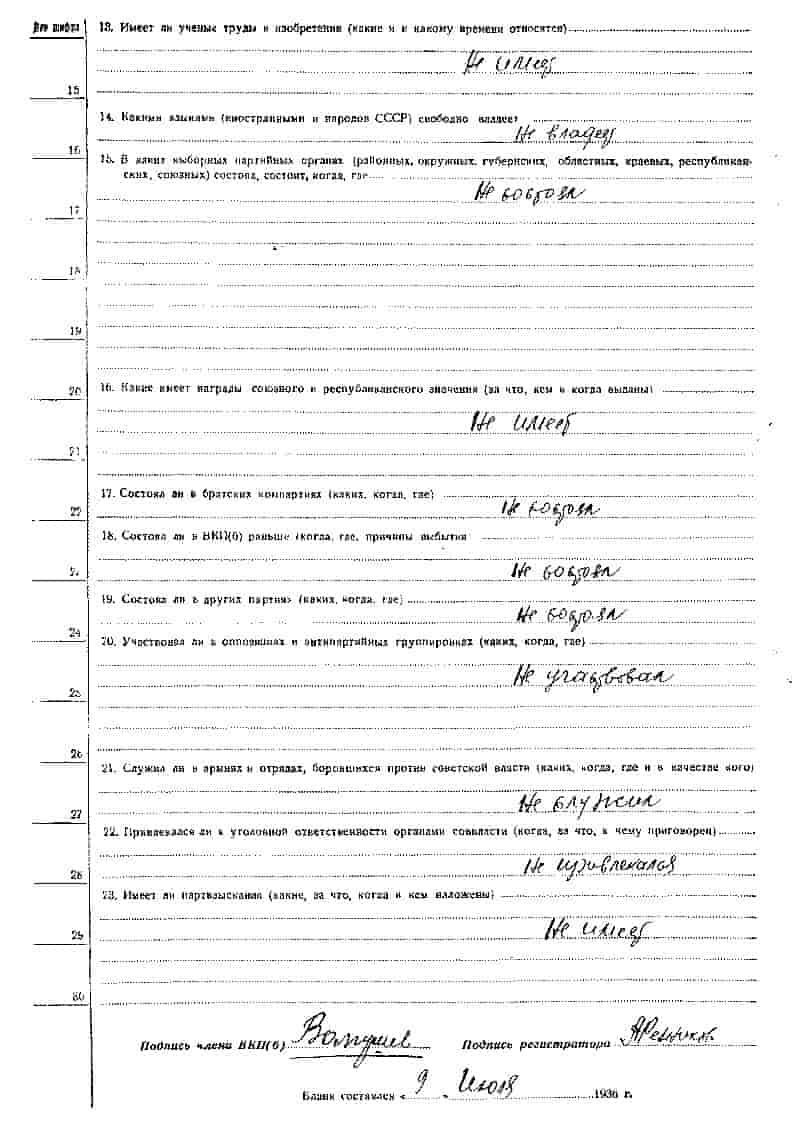 Для шифра
13. Имеет ли ученые труды и изобретения (какие и к какому времени относятся)
Не имеет
15
14. Какими языками (иностранными и народов СССР) свободно владеет
Не владеет
16
15. В каких выборных партийных органах (районных, окружных, губернских, областных, краевых, республикан-
ских, союзных) состоял, состоит, когда, где
Не состоял
17
18
19
20
16. Какие имеет награды союзного и республиканского значения (за что, кем и когда выданы)
Не имеет
21
17. Состоял ли в братских компартиях (каких, когда, где)
Не состоял
22
18. Состоял ли в ВКП(б) раньше (когда, где, причины выбытия
Не состоял
23
19. Состоял ли в других партиях (каких, когда, где)
Не состоял
24
20. Участвовал ли в оппозициях и антипартийных группировках (каких, когда, где)
Не участвовал
25
26
21. Служил ли в армиях и отрядах, боровшихся против советской власти (каких, когда, где и в качестве кого)
Не служил
27
22. Привлекался ли к уголовной ответственности органами соввласти (когда, за что, к чему приговорен)
Не привлекался
28
23. Имеет ли партвзыскания (какие, за что, когда и кем наложены)
Не имеет
29
30
Подпись члена ВКП(б) Подпись регистратора
Бланк составлен « 9 » Июля 1936 г.